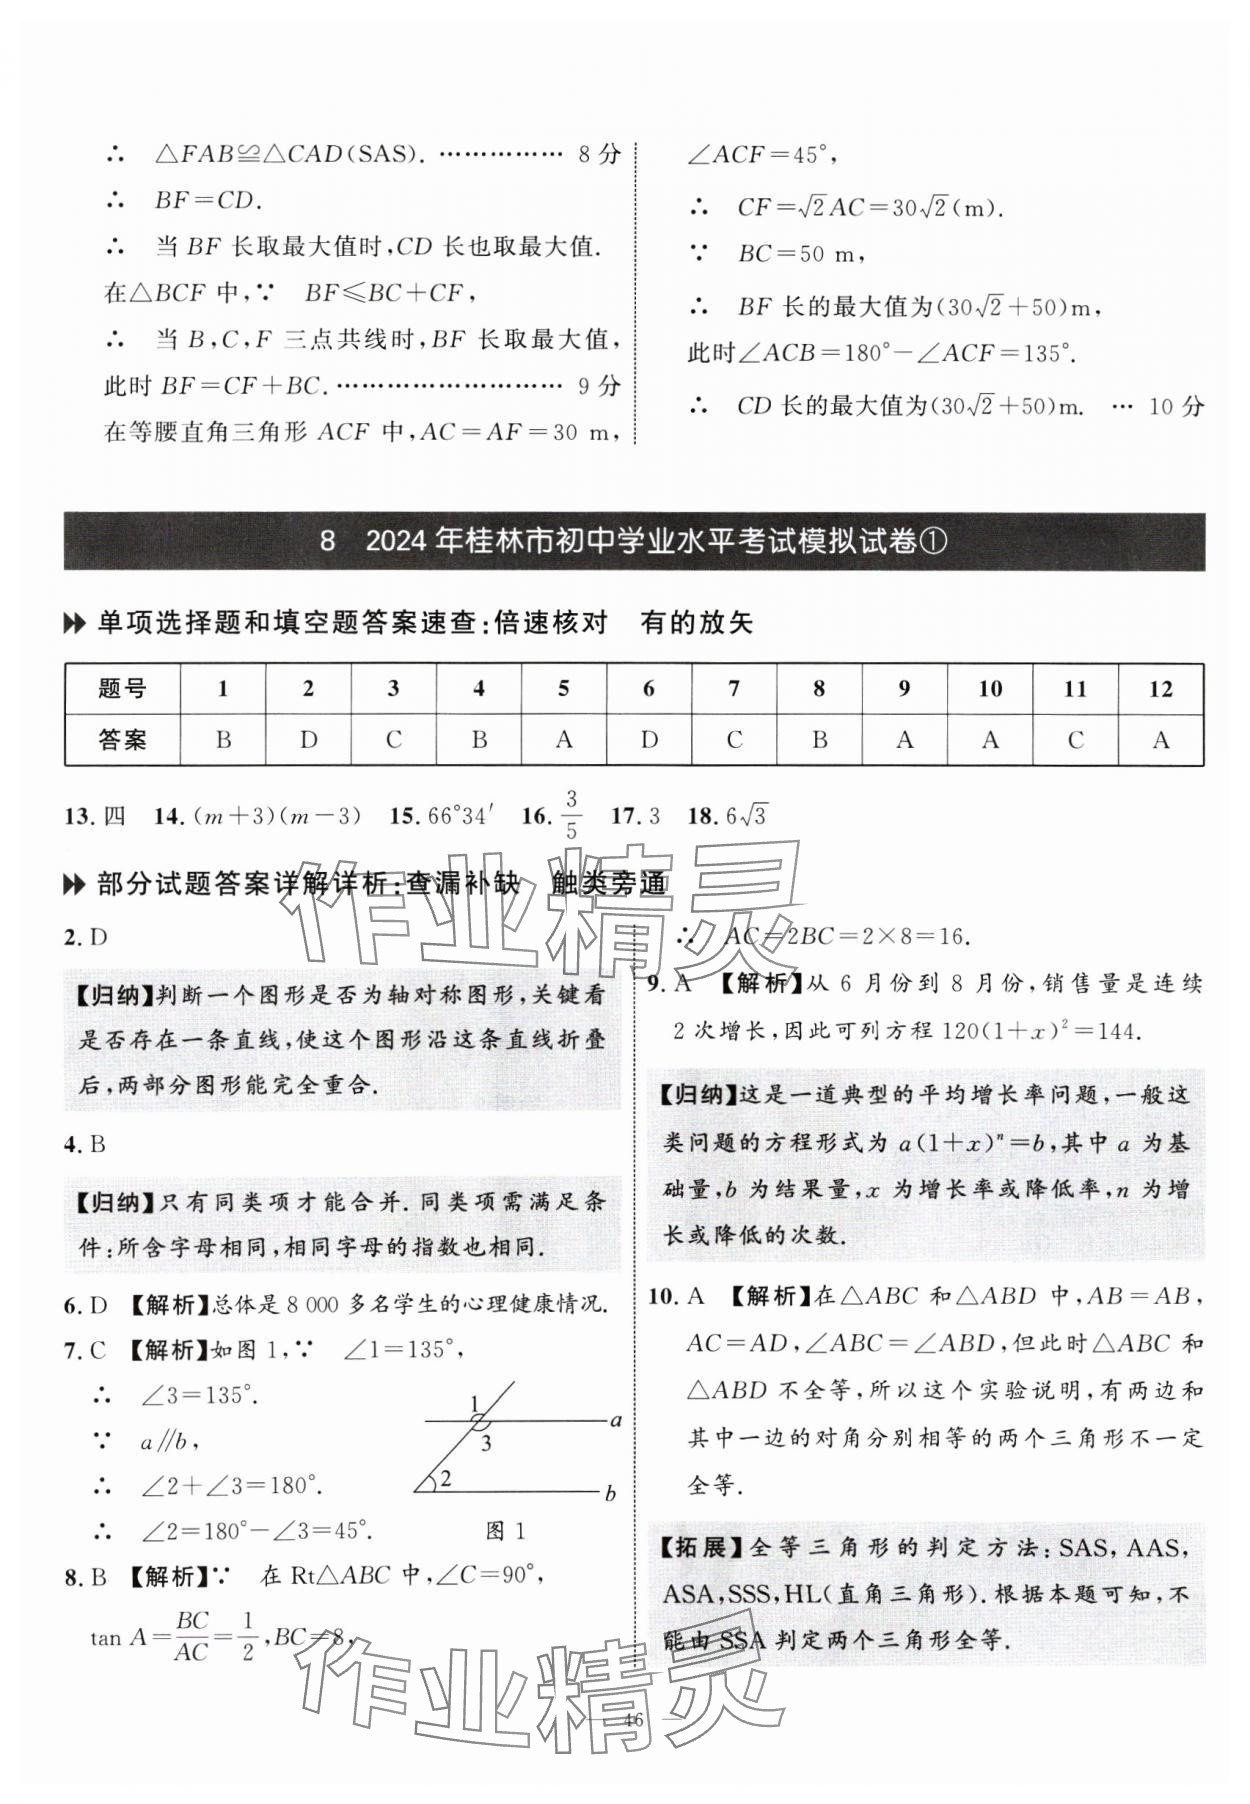 ∴ △FAB≌△CAD(SAS). …………… 8 分
∴ BF=CD.
∴ 当 BF 长取最大值时,CD 长也取最大值.
在△BCF 中,∵ BF≤BC+CF,
∴ 当 B,C,F 三点共线时,BF 长取最大值,
此时 BF=CF+BC. ……………………… 9 分
在等腰直角三角形 ACF 中,AC=AF=30 m,
∠ACF=45°,
∴ CF=√2AC=30√2(m).
∵ BC=50 m,
∴ BF 长的最大值为(30√2+50)m,
此时∠ACB=180°-∠ACF=135°.
∴ CD 长的最大值为(30√2+50)m. … 10 分
8 2024 年桂林市初中学业水平考试模拟试卷①
单项选择题和填空题答案速查:倍速核对 有的放矢
题号 1 2 3 4 5 6 7 8 9 10 11 12
答案 B D C B A D C B A A C A
13. 四 14. (m+3)(m-3) 15. 66°34′ 16. 3/5 17. 3 18. 6√3
部分试题答案详解详析:查漏补缺 触类旁通
2. D
【归纳】判断一个图形是否为轴对称图形,关键看
是否存在一条直线,使这个图形沿这条直线折叠
后,两部分图形能完全重合.
4. B
【归纳】只有同类项才能合并. 同类项需满足条
件:所含字母相同,相同字母的指数也相同.
6. D 【解析】总体是 8 000 多名学生的心理健康情况.
7. C 【解析】如图 1,∵ ∠1=135°,
∴ ∠3=135°.
∵ a∥b,
∴ ∠2+∠3=180°.
∴ ∠2=180°-∠3=45°.
1
a
3
2
b
图 1
8. B 【解析】∵ 在 Rt△ABC 中,∠C=90°,
tan A=BC/AC=1/2,BC=8,
∴ AC=2BC=2×8=16.
9. A 【解析】从 6 月份到 8 月份,销售量是连续
2 次增长,因此可列方程 120(1+x)²=144.
【归纳】这是一道典型的平均增长率问题,一般这
类问题的方程形式为 a(1+x)ⁿ=b,其中 a 为基
础量,b 为结果量,x 为增长率或降低率,n 为增
长或降低的次数.
10. A 【解析】在△ABC 和△ABD 中,AB=AB,
AC=AD,∠ABC=∠ABD,但此时△ABC 和
△ABD 不全等,所以这个实验说明,有两边和
其中一边的对角分别相等的两个三角形不一定
全等.
【拓展】全等三角形的判定方法:SAS,AAS,
ASA,SSS,HL(直角三角形).根据本题可知,不
能由 SSA 判定两个三角形全等.
46
作业精灵
作业精灵